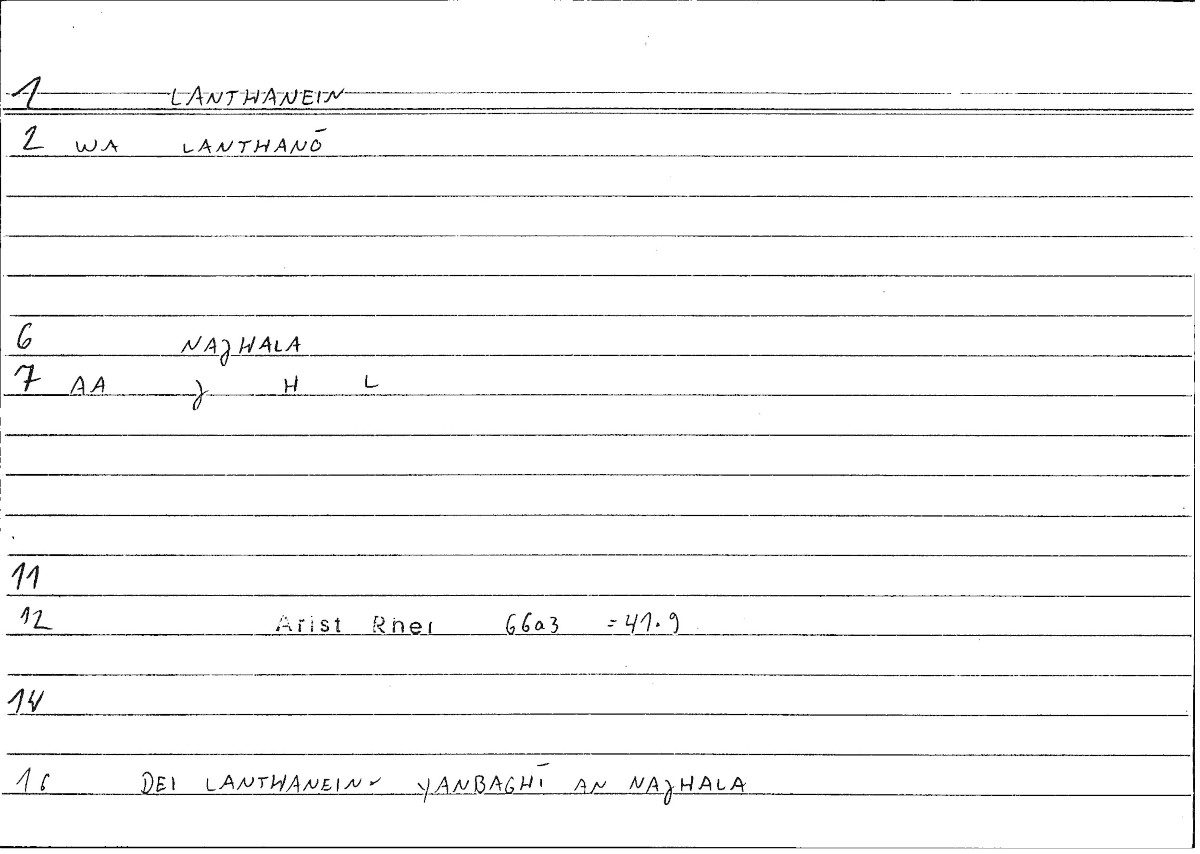 1 LANTHANEIN
2 WA LANTHANŌ
6 NAȷHALA
7 AA ȷ H L
11
12 Arist Rhet 66a3 =41.9
14
16 DEI LANTHANEIN YANBAGHĪ AN NAȷHALA